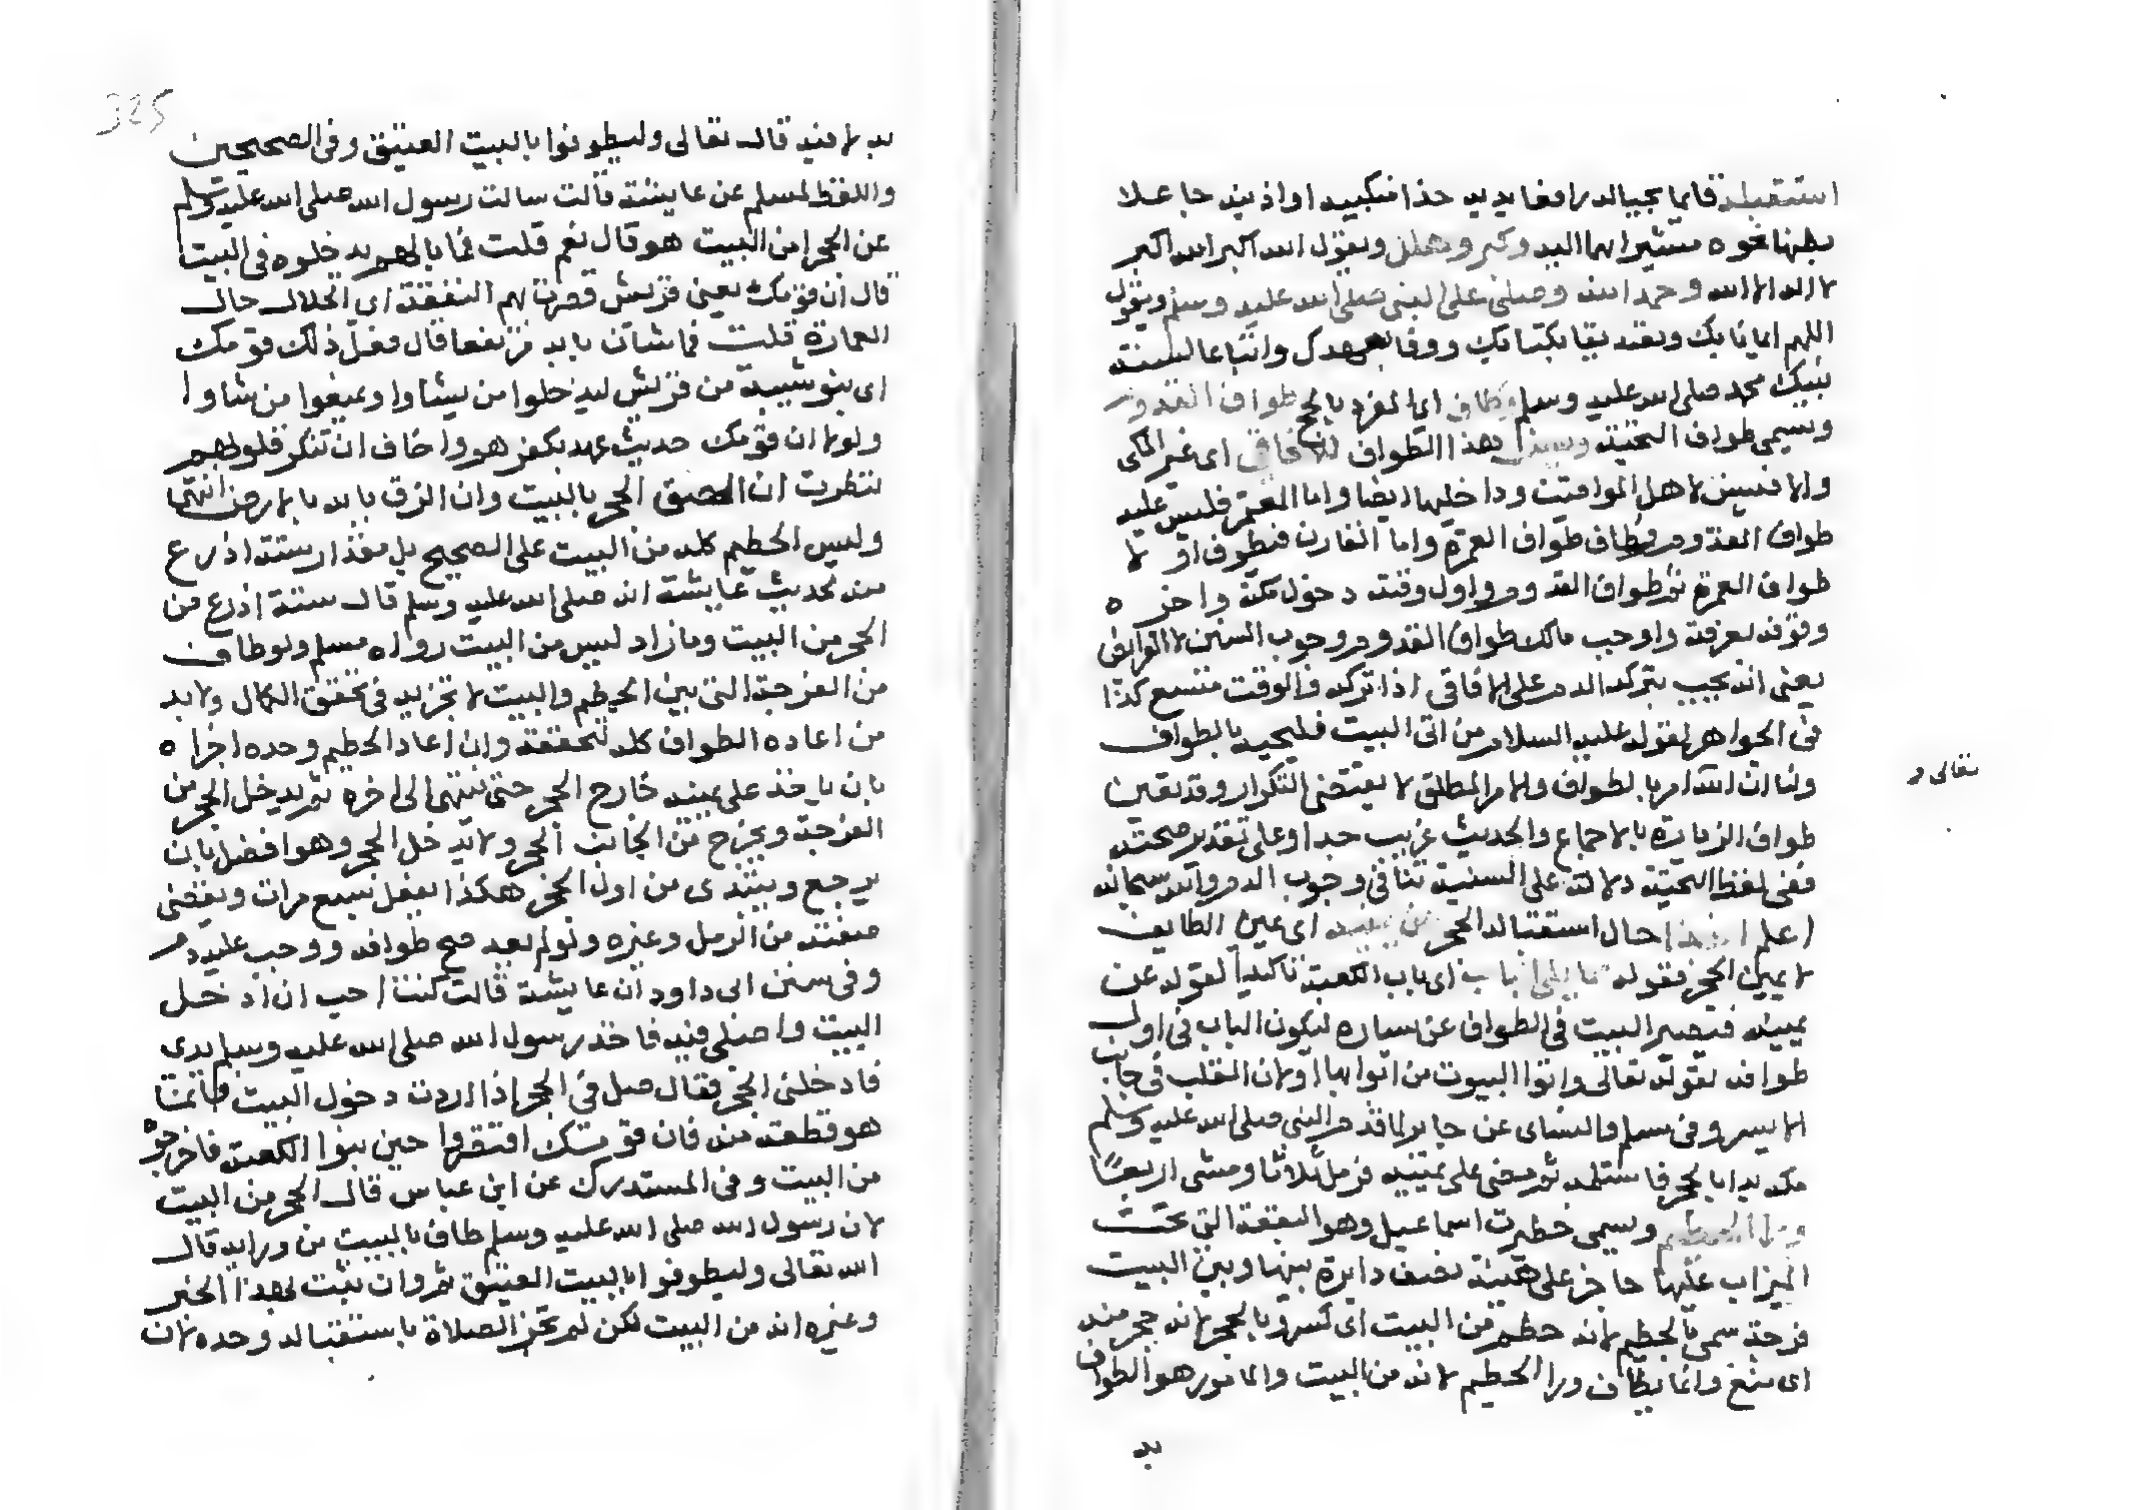 استقبله قائما بحياله رافعا يديه حذا منكبيه او اذنيه جاعلا
بطنهما نحوه مشيرا بهما اليه وكبر وهلل ويقول الله اكبر الله اكبر
لا اله الا الله وحمد الله وصلى على النبي صلى الله عليه وسلم ويقول
اللهم ايمانا بك وتصديقا بكتابك ووفا بعهدك واتباعا لسنة
نبيك محمد صلى الله عليه وسلم وطاف اي المفرد بالحج طواف القدوم
ويسمى طواف التحية وسن هذا الطواف للافاقي اي غير المكي
ولا فيسن لاهل المواقيت وداخلها ايضا واما المعتمر فليس عليه
طواف القدوم وطاف طواف العمرة واما القارن فيطوف اولا
طواف العمرة ثم طواف القدوم واول وقته دخول مكة واخره
وقوفه بعرفة واوجب مالك طواف القدوم وجوب السنن لا الفرايض
يعني انه يجب بتركه الدم على الافاقي اذا تركه والوقت متسع كذا
في الجواهر لقوله عليه السلام من اتى البيت فليحيه بالطواف
ولنا ان الله امر بالطواف والامر المطلق لا يقتضي التكرار وقد تعين
تعالى و
طواف الزيارة بالاجماع والحديث غريب جدا وعلى تقدير صحته
ففي لفظ التحية دلالة على السنية تنافي وجوب الدم والله سبحانه
اعلم اخذا حال استقباله الحجر عن يمينه اي يمين الطايف
لا يمين الحجر فقوله مما يلي الباب اي باب الكعبة تاكيدا لقوله عن
يمينه فتصير البيت في الطواف عن يساره ليكون الباب في اول
طوافه لقوله تعالى واتوا البيوت من ابوابها ولان القلب في جانب
الايسر وفي مسلم والنسائ عن جابر لما قدم النبي صلى الله عليه وسلم
مكة بدا بالحجر فاستلمه ثم مضى على يمينه فرمل ثلاثا ومشى اربعا
ورا الحطيم ويسمى حظيرة اسماعيل وهو البقعة التي تحت
الميزاب عليها حاجز على هيئة نصف دايرة بينها وبين البيت
فرجة سمى بالحطيم لانه حطم من البيت اي كسر وبالحجر لانه حجر منه
اي منع وانما يطاف ورا الحطيم لانه من البيت والمامور هو الطواف
به
325
به لا فيه قال تعالى وليطوفوا بالبيت العتيق وفي الصحيحين
واللفظ لمسلم عن عايشة قالت سالت رسول الله صلى الله عليه وسلم
عن الحجر امن البيت هو قال نعم قلت فما بالهم لم يدخلوه في البيت
قال ان قومك يعني قريش قصرت بهم النفقة اي الحلال حال
العمارة قلت فما شان بابه مرتفعا قال فعل ذلك قومك
اي بنو شيبة من قريش ليدخلوا من يشاوا ويمنعوا من شاوا
ولولا ان قومك حديث عهد بكفر هو واخاف ان تنكر قلوبهم
لنظرت ان الصق الحجر بالبيت وان الزق بابه بالارض انتهى
وليس الحطيم كله من البيت على الصحيح بل مقدار ستة اذرع
منه لحديث عايشة انه صلى الله عليه وسلم قال ستة اذرع من
الحجر من البيت وما زاد ليس من البيت رواه مسلم ولو طاف
من الفرجة التي بين الحطيم والبيت لا تجزيه في تحقق الكمال ولا بد
من اعاده الطواف كله لتحققه وان اعاد الحطيم وحده اجزاه
بان ياخذ على يمينه خارج الحجر حتى ينتهي الى اخره ثم يدخل الحجر من
الفرجة ويخرج من الجانب الحجر ولا يدخل الحجر وهو افضل بان
يرجع ويبتدى من اول الحجر هكذا يفعل سبع مرات ويقضي
صفته من الرمل وغيره ولو لم يعد صح طوافه ووجب عليه دم
وفي سنن ابى داود ان عايشة قالت كنت احب ان ادخل
البيت واصلى فيه فاخذ رسول الله صلى الله عليه وسلم بيدى
فادخلني الحجر فقال صل في الحجر اذا اردت دخول البيت فانما
هو قطعة منه فان قومك اقتصروا حين بنوا الكعبة فاخرجوه
من البيت وفي المستدرك عن ابن عباس قال الحجر من البيت
لان رسول الله صلى الله عليه وسلم طاف بالبيت من ورايه قال
الله تعالى وليطوفوا بالبيت العتيق ثم وان ثبت بهذا الخبر
وغيره انه من البيت لكن لم تجز الصلاة باستقباله وحده لان